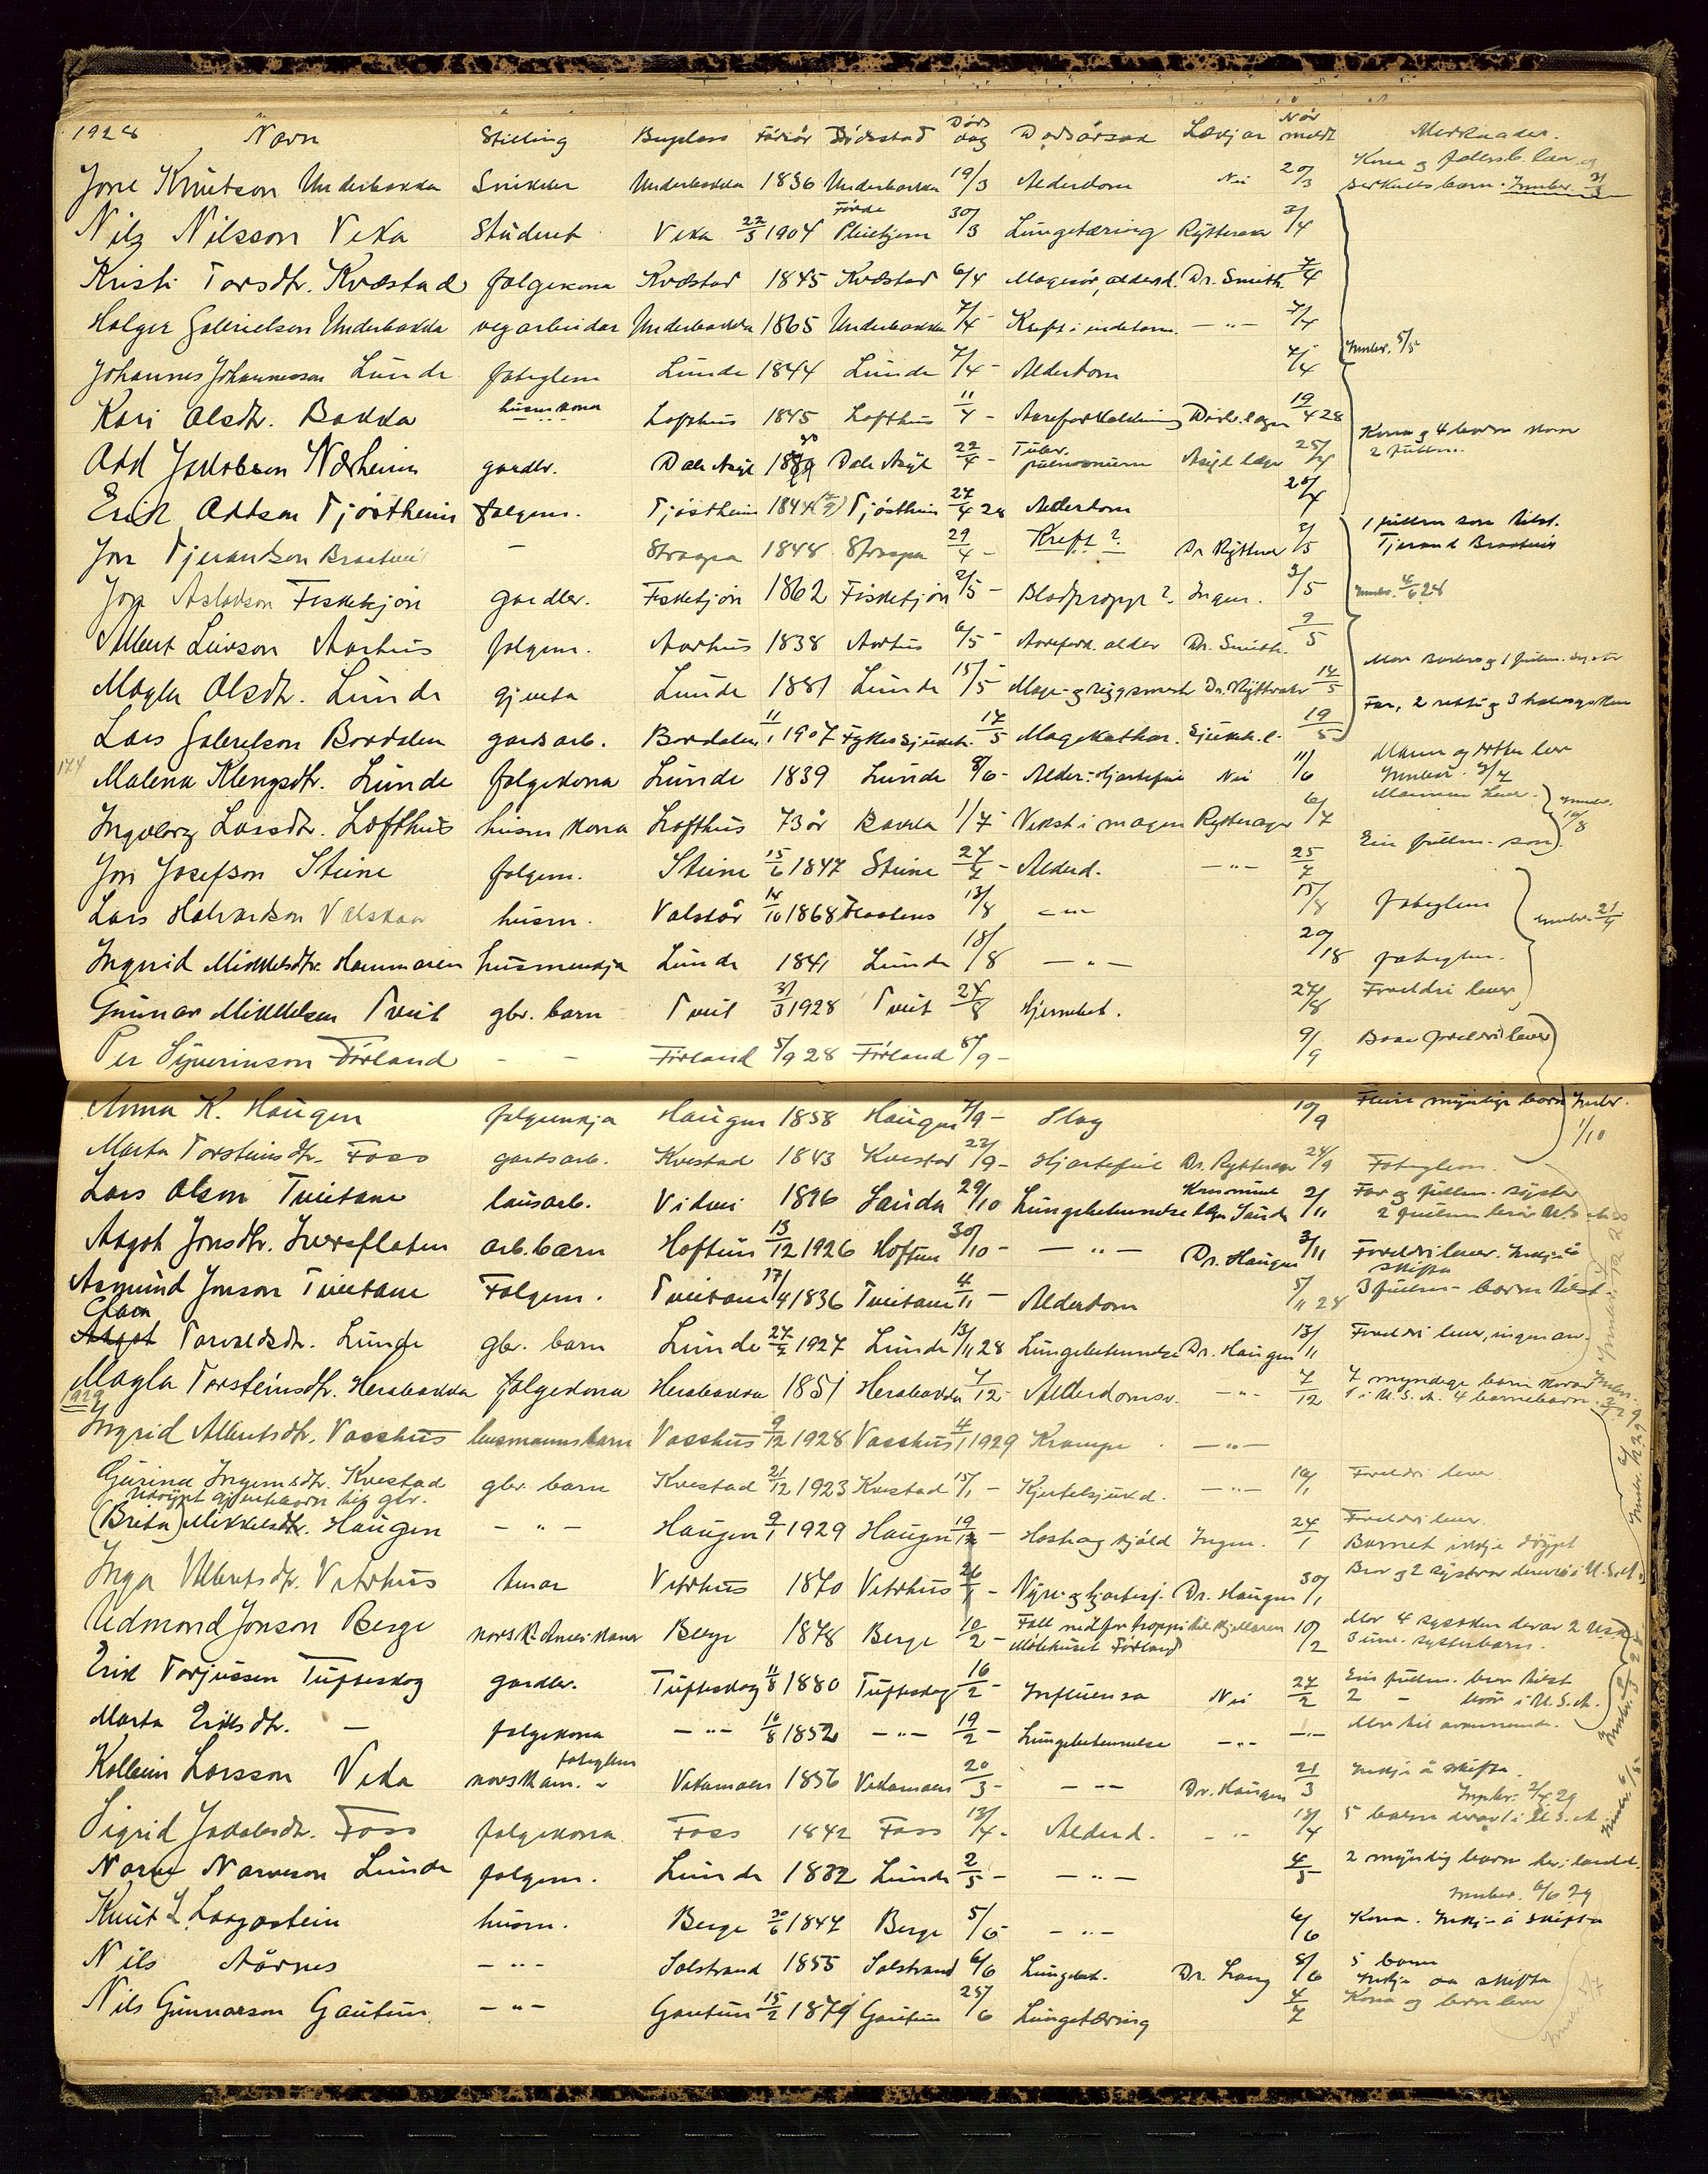 1928 Navn Stilling Buplass Födeår Dødsstad Døds dag Dødsårsak Lækjar Når meldt Merknader.
Jone Knutson Underbakka Snikkar Underbakka 1836 Underbakka 19/3 Alderdom Nei 20/3 Kona og
særkullsbarn. Innber. 31/3
Nils Nilsson Veka Student Veka 22/3 1904 Førde Pleiehjem 30/3 Lungetæring Rytterager 2/4
Kristi Torsdtr. Kvæstad folgekona Kvæstad 1845 Kvæstad 6/4 Magesår, alderd. Dr. Smith 7/4
Holger Gabrielson Underbakka vegarbeidar Underbakka 1865 Underbakka 7/4 Kreft i -"- 7/4
Johannes Johannesson Lunde fatiglem Lunde 1844 Lunde 7/4 - Alderdom 7/4 Innber. 5/5
Kari Olsdtr. Bakka husmkona Lofthus 1845 Lofthus 11/4 - Aareforkalkning 19/4 28
Odd Jakobson Nærheim gardbr. Dale Asyl Dale Asyl 22/4 - Tuber. pulmonum Asyl læge 25/4 Kona og 4 barn
Eirik Oddson Tjøstheim folgem. Tjøstheim 1844 Tjøstheim 27/4 28 Alderdom 28/4
Jon Tjerandson Braatvei - Straapa 1848 Straapa 29/4 - Kreft? Dr. Rytterager 3/5 1 fullm. son tilst. Tjerand Braatvei
Jon Aslakson Fisketjøn gardbr. Fisketjøn 1862 Fisketjøn 2/5 - Blodpropp? Ingen. 3/5 Innber. 4/6 28
Albert Leivson Aarhus folgem. Aarhus 1838 Aarhus 6/5 - Aarefork. alder Dr. Smith. 9/5
Magla Olsdtr. Lunde gjenta Lunde 1881 Lunde 15/5 - Mage- og ryggsmert Dr. Rytterager 14/5
Lars Gabrielson Bordalen gardsarb. Bordalen 11/1 1907 Fylkessjukeh. 17/5 Magekathar. Sjukeh. l. 19/5 Far, 2 rette og 3 halvsysken
174 Malena Klengsdtr. Lunde folgekona Lunde 1839 Lunde 8/6 - Alder- Hjartefeil Nei 11/6 Mann og dotter lever Innber. 3/7
Ingeborg Larsdtr. Lofthus husm kona Lofthus 73 år Bakka 1/7 - Vekst i magen Rytterager 6/7 Mannen lever. Innber. 10/8
Jon Josefson Steine folgem. Steine 15/6 1847 Steine 24/7 - Alderd. -"- 25/7 Ein fullm. son
Lars Halvardson Valskaar husm. Valskår 14/10 1868 13/8 -"- 15/8 fatiglem Innber. 21/9
Ingrid Mikkelsdtr. Hammaren husmenkja Lunde 1841 Lunde 18/8 -"- 20/8 fatiglem.
Gunnar Mikkelsen Tveit gbr. barn Tveit 31/3 1928 Tveit 24/8 Hjernebet. 27/8 Foreldri lever
Per Syverinson Førland - - Førland 5/9 28 Førland 5/9 - 9/9 Baae foreldri lever
Anna K. Haugen folgeenkja Haugen 1858 Haugen 7/9 - Slag 10/9 Fleire myndige barn Innber. 1/10
Marta Torsteinsdtr. Foss gardsarb. Kvestad 1843 Kvestad 22/9 - Hjartefeil Dr. Rytterager 24/9 Fatiglem.
Lars Olson Tveitane lausarb. Vidvei 1896 Sauda 29/10 Lungebetennelse 2/11 Far og fullm. syster
Asgot Jonsdtr. Iversflaten arb. barn Hoftun 13/12 1926 Hoftun 30/10 - -"- Dr. Haugen 3/11 Foreldri lever. Inkje å skifta
Asmund Jonson Tveitane Folgem. Tveitane 17/4 1836 Tveitane 4/11 - Alderdom 5/11 28 3 fullm. barn tilst.
Clara Asgot Torvaldsdtr. Lunde gbr. barn Lunde 27/7 1927 Lunde 13/11 28 Lungebetennelse Dr. Haugen 13/11 Foreldri lever, ingen arv.
Magla Torsteinsdtr. Herabakka folgekona Herabakka 1851 Herabakka 7/12 - Alderdomsv. -"- 7/12 7 myndige barn korav 1 i U.S.A. 4 barnebarn.
1929
Ingrid Albertsdtr. Vasshus lensmannsbarn Vasshus 9/12 1928 Vasshus 4/1 1929 Krampe -"-
Gurina Ingemsdtr. Kvestad gbr. barn Kvestad 21/12 1923 Kvestad 15/1 - Kjertelsjukd. -"- 16/1 Foreldri lever.
Udøypt gjentebarn til gbr.
(Brita) Mikkelsdtr. Haugen -"- Haugen 9/1 1929 Haugen 19/1 - Hoste og kjøld Ingen. 24/1 Foreldri lever. Barnet inkje døypt
Inga Albertsdtr. Vetrhus tenar Vetrhus 1870 Vetrhus 26/1 - Nyre- og hjartesj. Dr. Haugen 30/1 Bror og 2 systrar derav i U.S.A.
Vedmond Jonson Berge norsk Amerikanar Berge 1878 Berge 10/2 - Fall ned for trappi til kjellaren Møtehuset Førland 10/2 Mor 4 sysken derav 2 USA 3 systerbarn.
Eirik Torjussen Tuftesdog gardbr. Tuftesdog 11/8 1880 Tuftesdog 16/2 - Influensa Nei 27/2 Ein fullm. bror tilst. 2 - brør i U.S.A.
Marta Eriksdtr. - folgekona -"- 16/8 1852 -"- 19/2 - Lungebetennelse -"- -"- Mor til ovannemnde.
Kolbein Larsson Veka norskam. fatiglem Vekamoen 1856 Vekamoen 20/3 - -"- Dr. Haugen 21/3 Inkje å skifta. Innber. 2/4 29
Sigrid Jakobsdtr. Foss folgekona Foss 1842 Foss 13/4 - Alderd. -"- 18/4 5 barn derav 1 i U.S.A.
Narve Narveson Lunde folgem. Lunde 1832 Lunde 2/5 - -"- 4/5 2 myndig barn her i landet. Innber. 6/6 29
Knut L. Laagastein husm. Berge 30/6 1847 Berge 5/6 -"- 6/6 Kona. Inkje å skifta
Nils Aarnes -"- Solstrand 1855 Solstrand 6/6 Lungebet. Dr. Lang 8/6 5 barn Inkje aa skifta
Nils Gunnarson Gautun -"- Gautun 15/2 1879 Gautun 25/6 Lungetæring 4/7 Kona og born lever